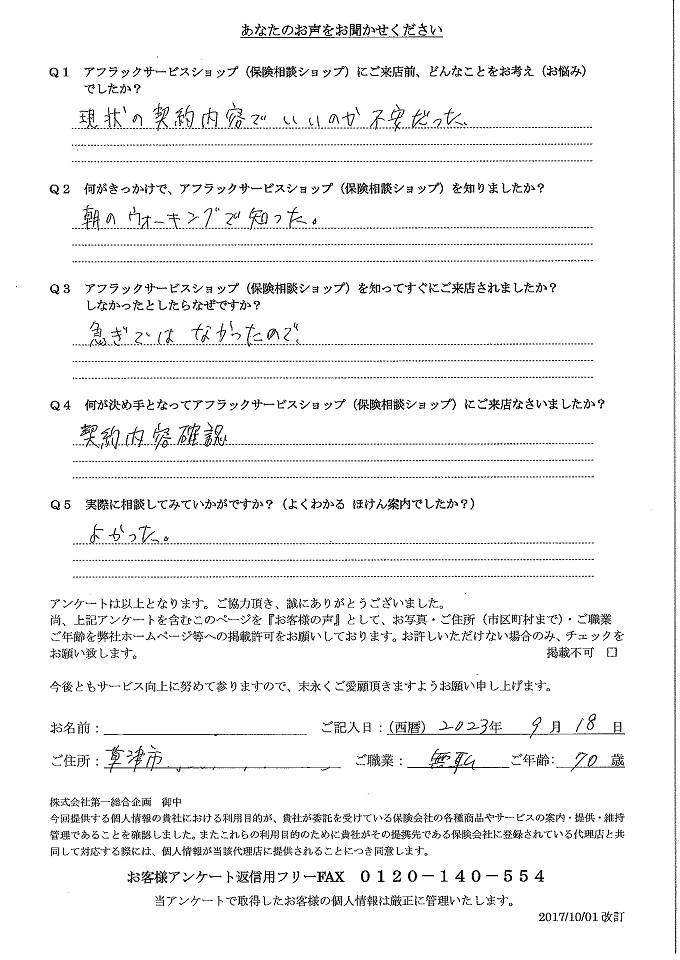 あなたのお声をお聞かせください
Q1 アフラックサービスショップ（保険相談ショップ）にご来店前、どんなことをお考え（お悩み）
でしたか？
現状の契約内容でいいのか不安だった、
Q2 何がきっかけで、アフラックサービスショップ（保険相談ショップ）を知りましたか？
朝のウォーキングで知った。
Q3 アフラックサービスショップ（保険相談ショップ）を知ってすぐにご来店されましたか？
しなかったとしたらなぜですか？
急ぎではなかったので、
Q4 何が決め手となってアフラックサービスショップ（保険相談ショップ）にご来店なさいましたか？
契約内容確認
Q5 実際に相談してみていかがですか？（よくわかる ほけん案内でしたか？）
よかった。
アンケートは以上となります。ご協力頂き、誠にありがとうございました。
尚、上記アンケートを含むこのページを『お客様の声』として、お写真・ご住所（市区町村まで）・ご職業
ご年齢を弊社ホームページ等への掲載許可をお願いしております。お許しいただけない場合のみ、チェックを
お願い致します。 掲載不可 □
今後ともサービス向上に努めて参りますので、末永くご愛顧頂きますようお願い申し上げます。
お名前： ご記入日：（西暦）2023年 9月 18日
ご住所：草津市 ご職業： 無職 ご年齢： 70 歳
株式会社第一総合企画 御中
今回提供する個人情報の貴社における利用目的が、貴社が委託を受けている保険会社の各種商品やサービスの案内・提供・維持
管理であることを確認しました。またこれらの利用目的のために貴社がその提携先である保険会社に登録されている代理店と共
同して対応する際には、個人情報が当該代理店に提供されることにつき同意します。
お客様アンケート返信用フリーFAX 0120－140－554
当アンケートで取得したお客様の個人情報は厳正に管理いたします。
2017/10/01 改訂